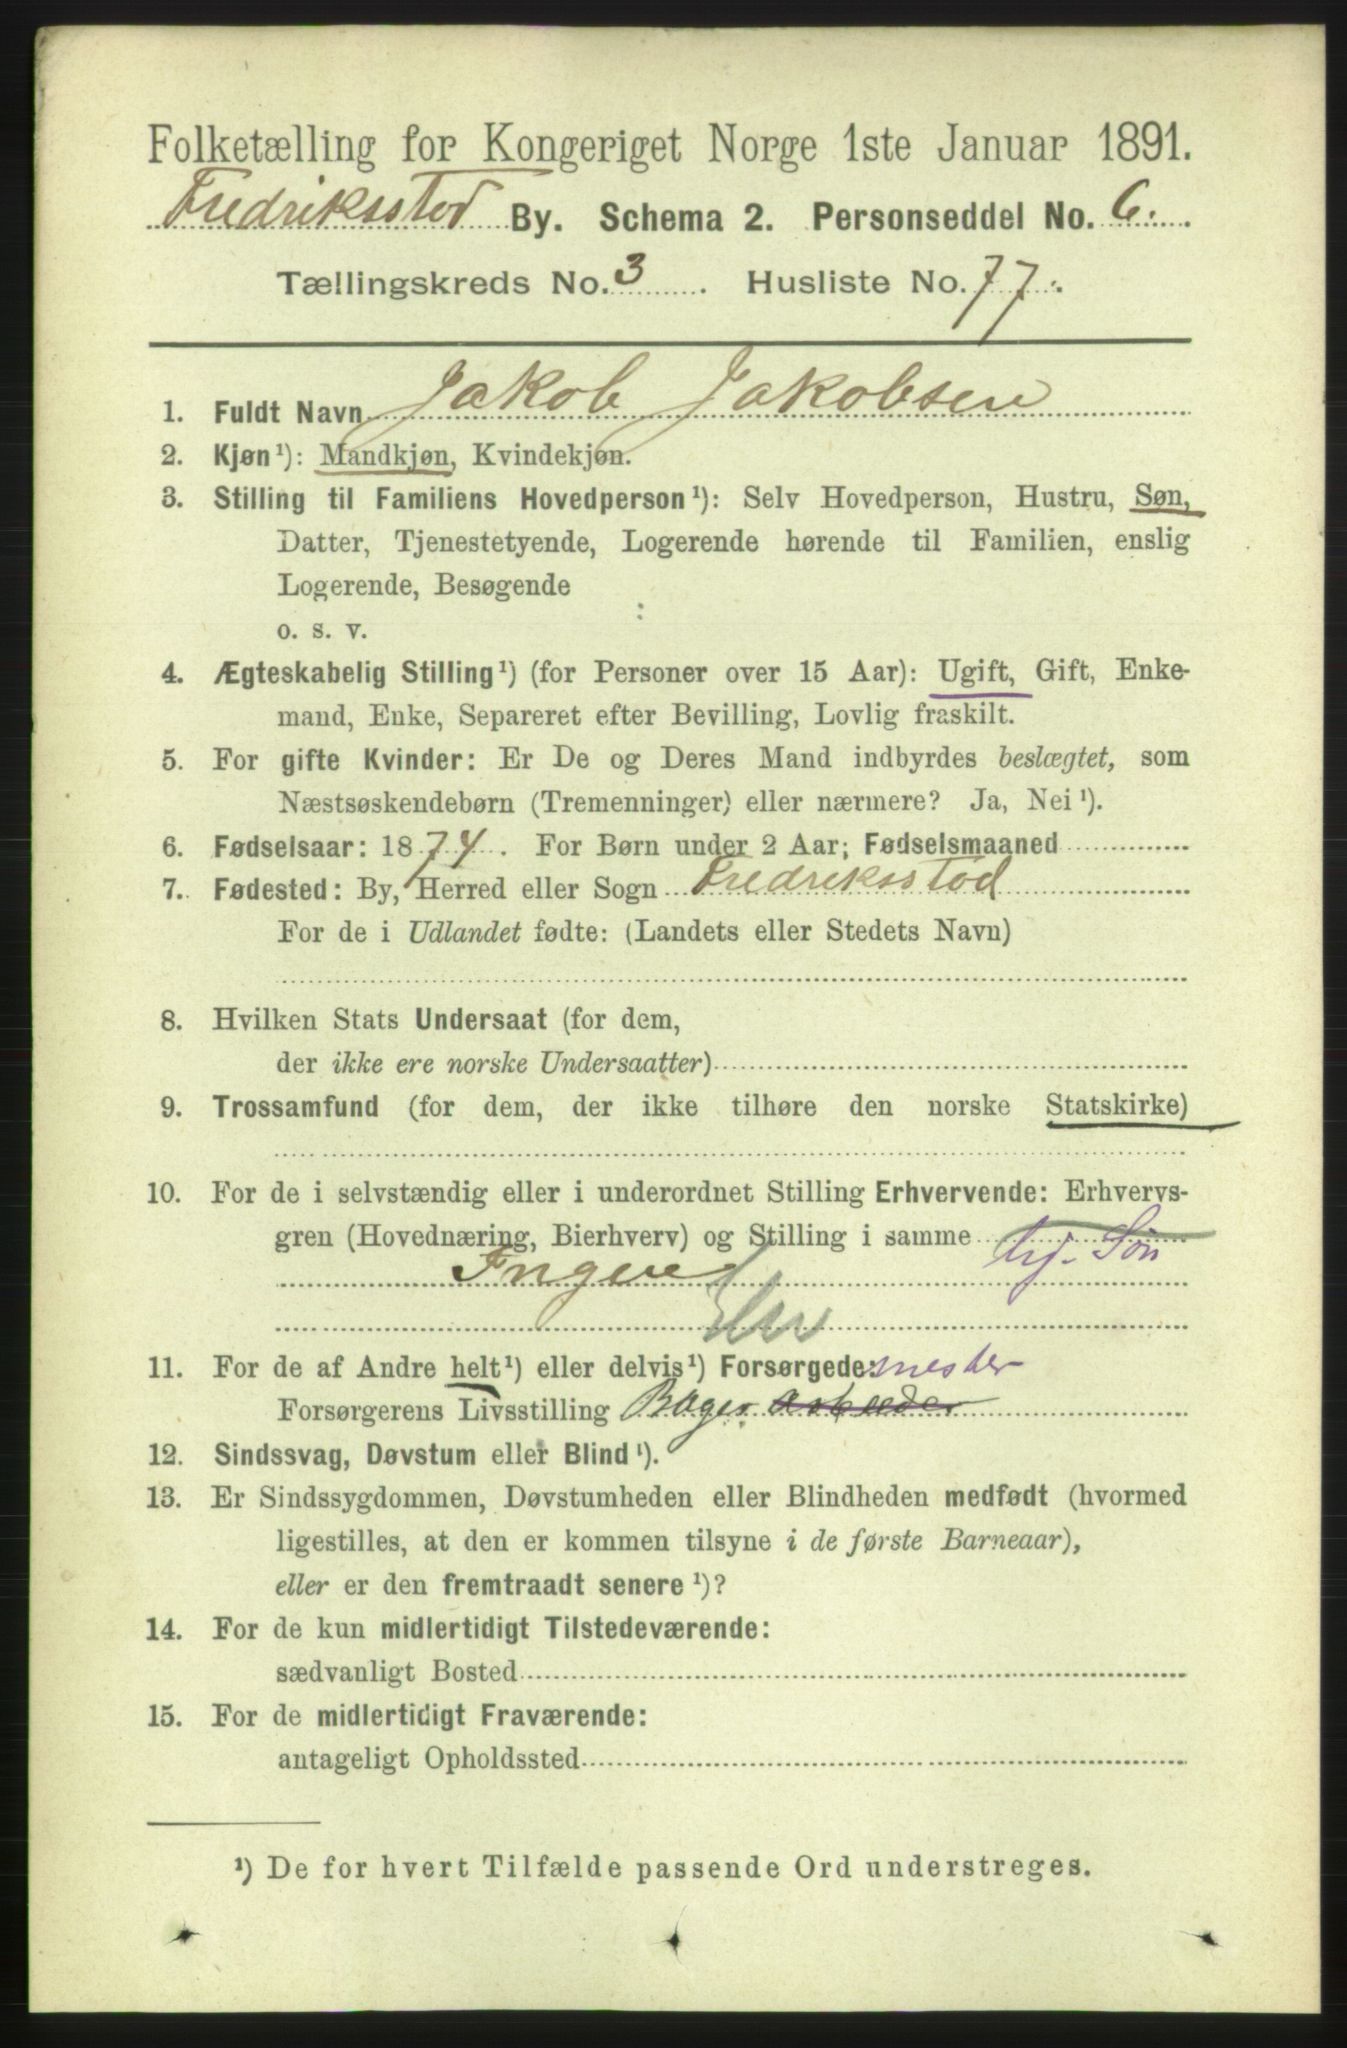 Folketælling for Kongeriget Norge 1ste Januar 1891.
Fredriksstad By. Schema 2. Personseddel No. 6.
Tællingskreds No. 3. Husliste No. 77.
1. Fuldt Navn Jakob Jakobsen
2. Kjøn¹): Mandkjøn, Kvindekjøn.
3. Stilling til Familiens Hovedperson¹): Selv Hovedperson, Hustru, Søn,
Datter, Tjenestetyende, Logerende hørende til Familien, enslig
Logerende, Besøgende
o. s. v.
4. Ægteskabelig Stilling¹) (for Personer over 15 Aar): Ugift, Gift, Enke-
mand, Enke, Separeret efter Bevilling, Lovlig fraskilt.
5. For gifte Kvinder: Er De og Deres Mand indbyrdes beslægtet, som
Næstsøskendebørn (Tremenninger) eller nærmere? Ja, Nei¹).
6. Fødselsaar: 1874. For Børn under 2 Aar; Fødselsmaaned
7. Fødested: By, Herred eller Sogn Fredriksstad
For de i Udlandet fødte: (Landets eller Stedets Navn)
8. Hvilken Stats Undersaat (for dem,
der ikke ere norske Undersaatter)
9. Trossamfund (for dem, der ikke tilhøre den norske Statskirke)
10. For de i selvstændig eller i underordnet Stilling Erhvervende: Erhvervs-
gren (Hovednæring, Bierhverv) og Stilling i samme hj. Søn
Ingen
11. For de af Andre helt¹) eller delvis¹) Forsørgede: mester
Forsørgerens Livsstilling Bager arbeider
12. Sindssvag, Døvstum eller Blind¹).
13. Er Sindssygdommen, Døvstumheden eller Blindheden medfødt (hvormed
ligestilles, at den er kommen tilsyne i de første Barneaar),
eller er den fremtraadt senere¹)?
14. For de kun midlertidigt Tilstedeværende:
sædvanligt Bosted
15. For de midlertidigt Fraværende:
antageligt Opholdssted
¹) De for hvert Tilfælde passende Ord understreges.